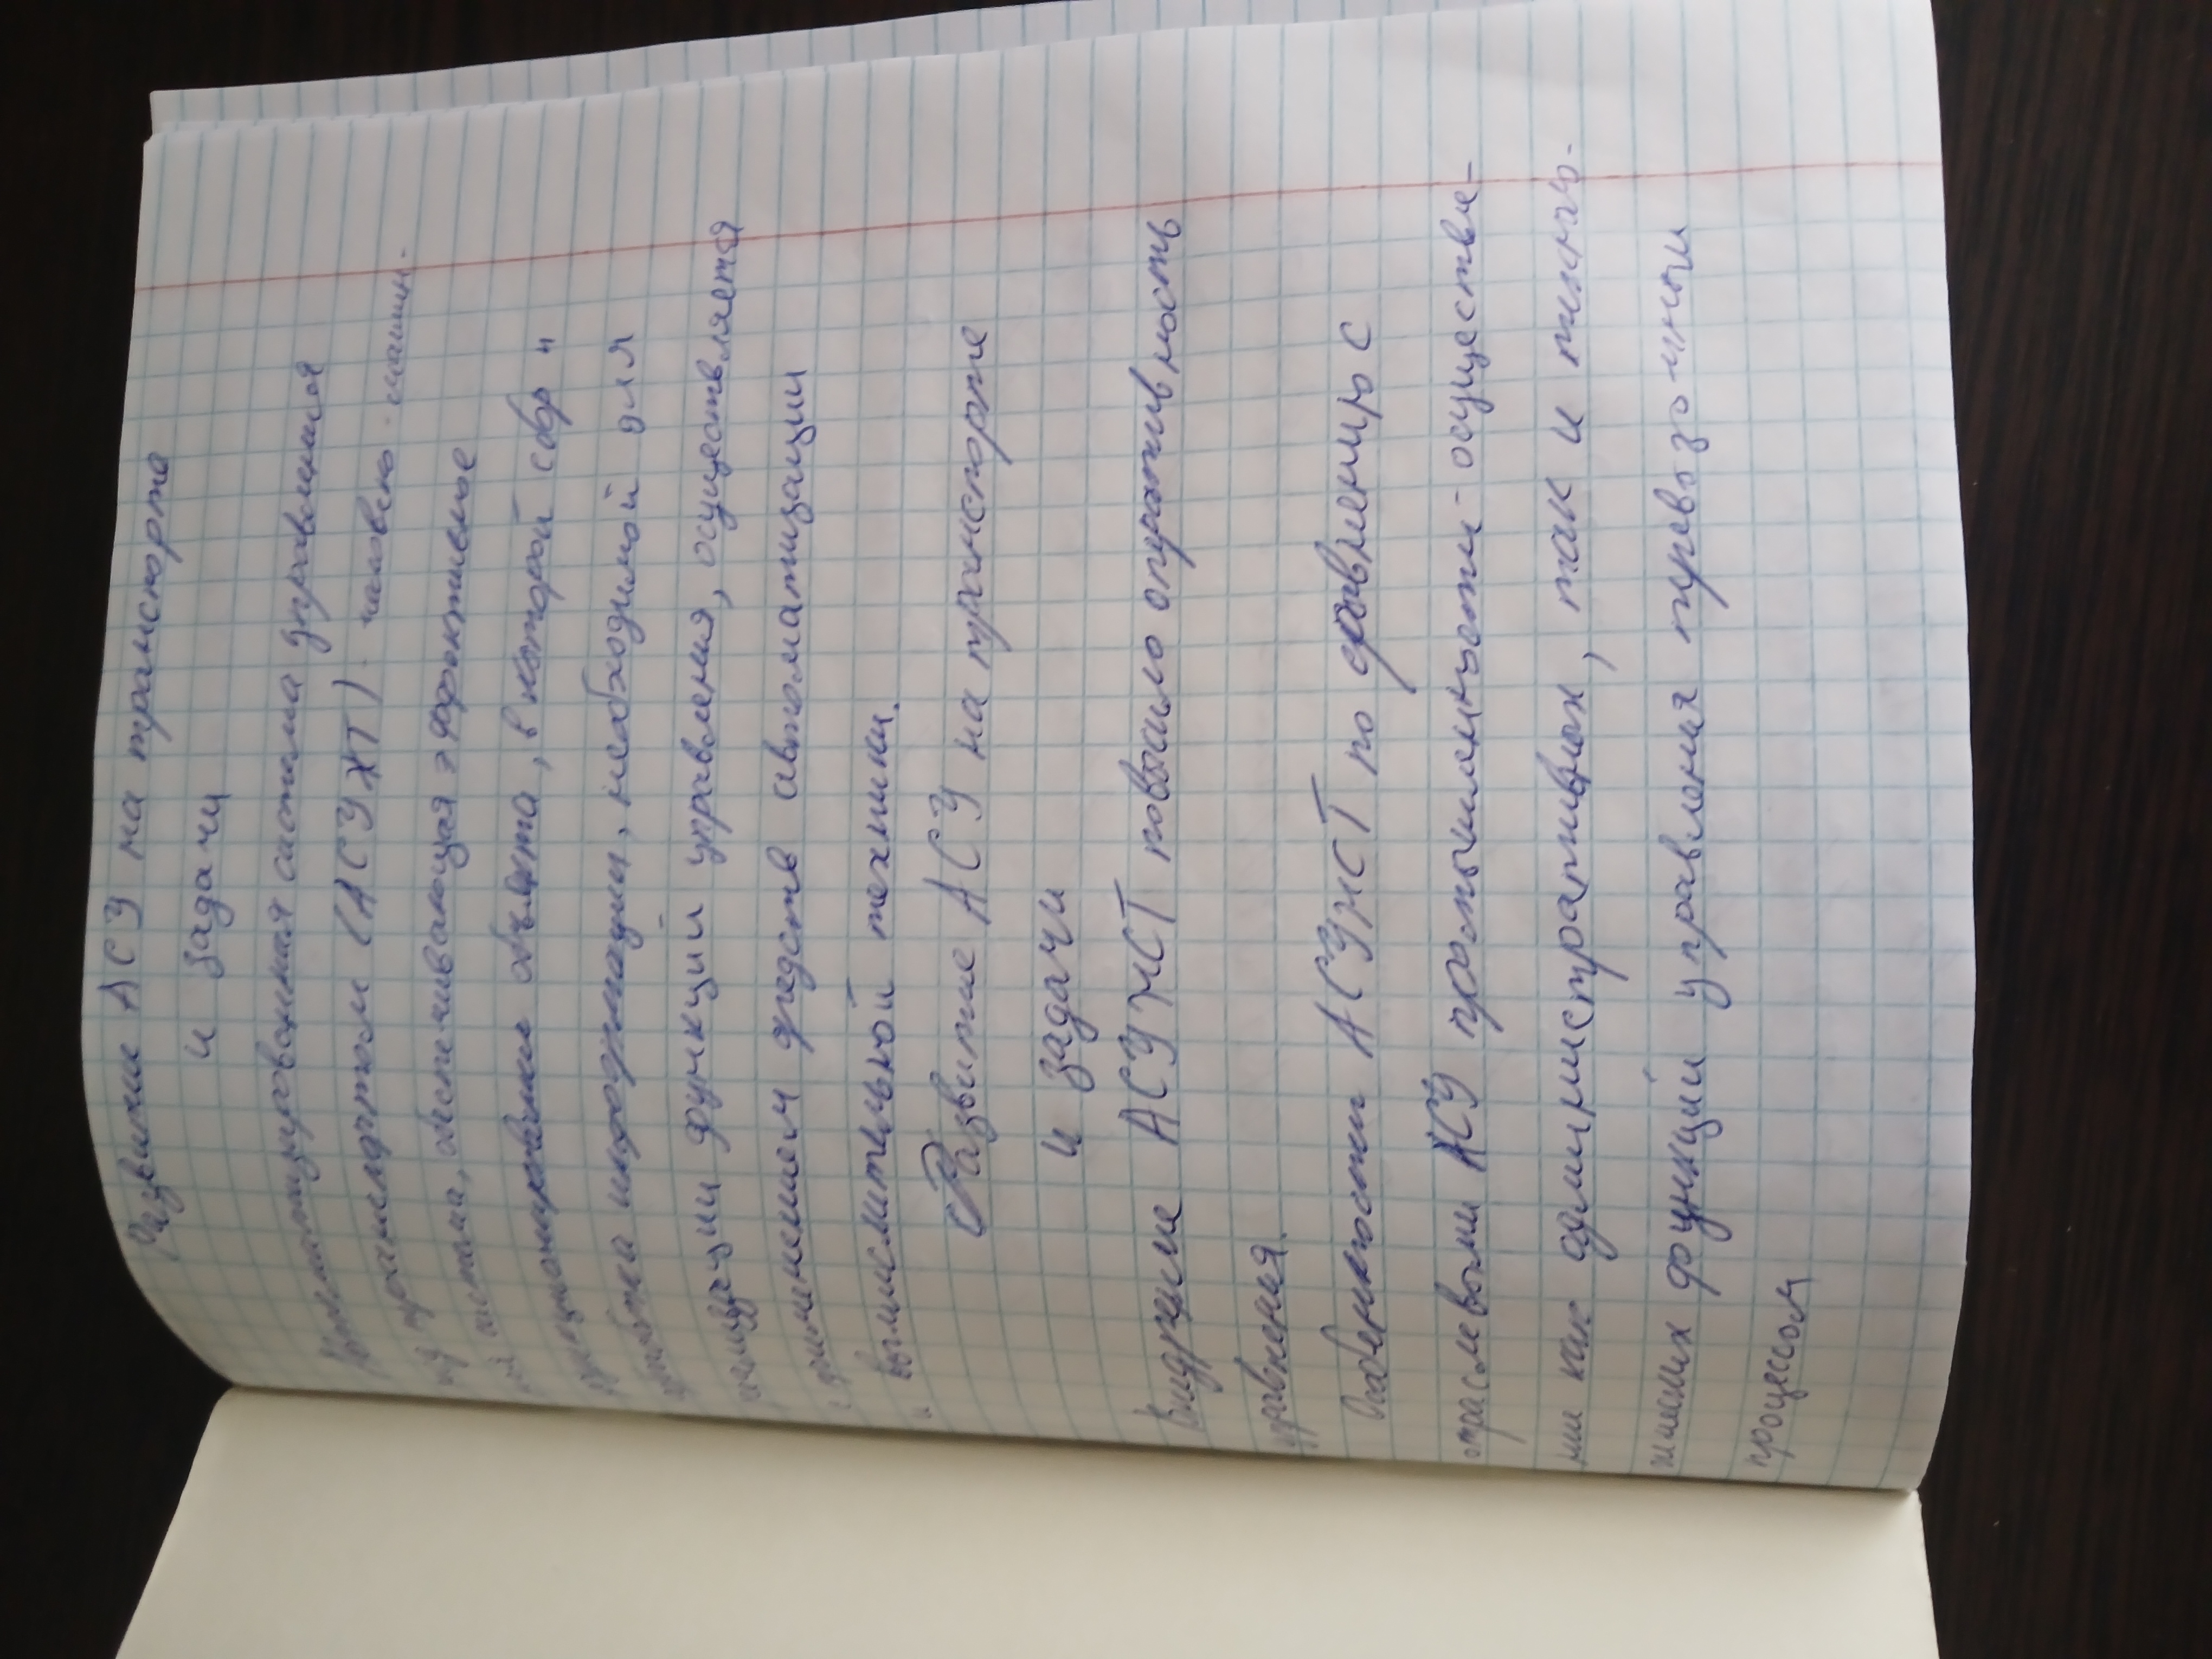 Развитие АСУ на транспорте
и задачи
Автоматизированная система управления
ж/д транспортом (АСУЖТ) - человеко-машин-
ная система, обеспечивающая эффективное
функционирование объекта, в которой сбор и
обработка информации, необходимой для
реализации функции управления, осуществляется
с применением средств автоматизации
и вычислительной техники.
Развитие АСУ на транспорте
и задачи
Внедрение АСУЖТ повысило оперативность
управления.
Особенности АСУЖТ по сравнению с
отраслевыми АСУ промышленности - осуществле-
ние как административных, так и техниче-
ких функций управления перевозочным
процессом